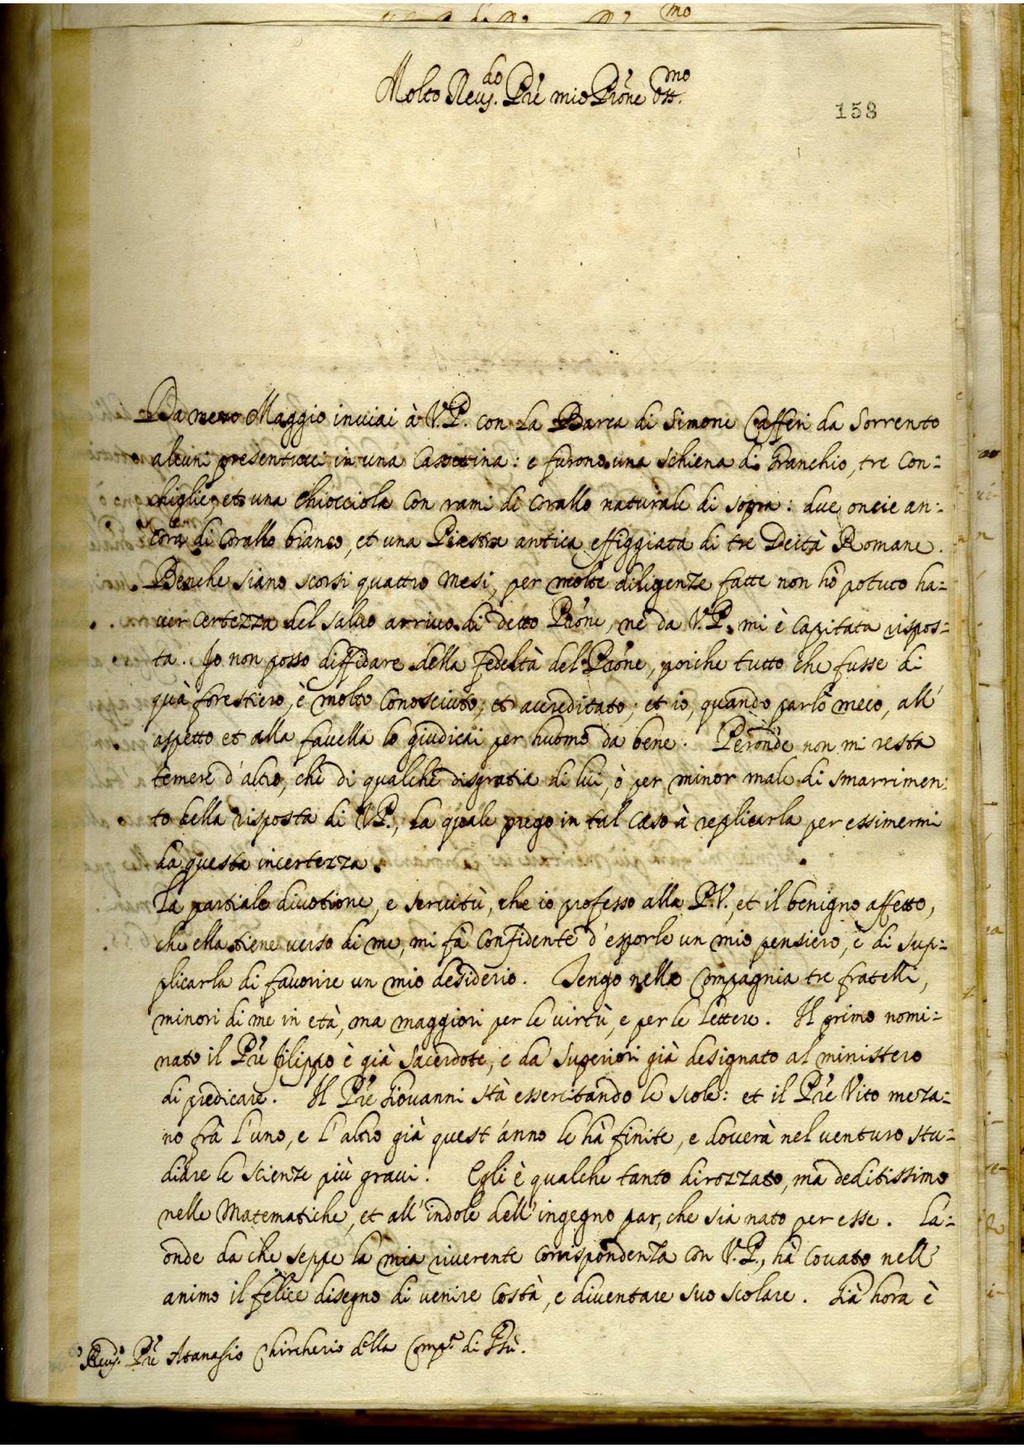 Molto Reu.do Pre mio Prone Oss.mo
158
Da mezo Maggio inuiai à V.P. con la Barca di Simone Cafferi da Sorrento
alcuni presentucci in una Cassettina: e furono una schiena di Granchio, tre Con-
chiglie, et una Chiocciola con rami di Corallo naturale di sopra: due oncie an-
cora di Corallo bianco, et una Piastra antica effiggiata di tre Deità Romane.
Benche siano scorsi quattro mesi, per molte diligenze fatte non hò potuto ha-
uer certezza del saluo arriuo di detto Prone, nè da V.P. mi è capitata rispos-
ta. Io non posso diffidare della fedeltà del Prone, poiche tutto che fusse di
quà forestiero, è molto conosciuto, et accreditato; et io, quando parlò meco, all'
aspetto et alla fauella lo giudicai per huomo da bene. Peronde non mi resta
temere d'altro, che di qualche disgratia di lui, ò per minor male di smarrimen-
to della risposta di V.P., la quale prego in tal caso à replicarla per essimermi
da questa incertezza.
La partiale diuotione, e seruitù, che io professo alla P.V., et il benigno affetto,
che ella tiene uerso di me, mi fà confidente d'esporle un mio pensiero, e di sup-
plicarla di fauorire un mio desiderio. Tengo nella Compagnia tre fratelli,
minori di me in età, ma maggiori per le uirtù, e per le lettere. Il primo nomi-
nato il Pre Filippo è già Sacerdote, e da' Superiori già designato al ministero
di predicare. Il Pre Giouanni stà essercitando le scole: et il Pre Vito meza-
no frà l'uno, e l'altro già quest'anno le hà finite, e douerà nel uenturo stu-
diare le scienze più graui. Egli è qualche tanto dirozzato, ma deditissimo
nelle Matematiche, et all'indole dell'ingegno par, che sia nato per esse. La-
onde da che seppe la mia riuerente corrispondenza con V.P., hà couato nell'
animo il felice disegno di uenire costà, e diuentare suo scolare. Già hora è
Reu.do Pre Atanasio Chircherio della Comp.a di Giesù.